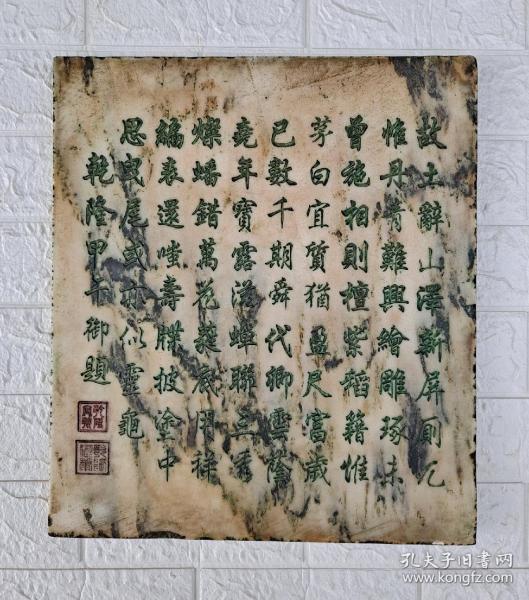 故土辭山澤新屏廁几
惟丹青難與繪雕琢未
曾施相則檀紫韜籍惟
茅白宜質猶盈尺富歲
已數千期舜代卿雲蔭
堯年寶露滋蟬聯三秀
燦蟠錯萬花蕤底用祥
編表還嗤壽牒披塗中
思曳尾或亦似靈龜
乾隆甲午御題
孔夫子旧书网
www.kongfz.com